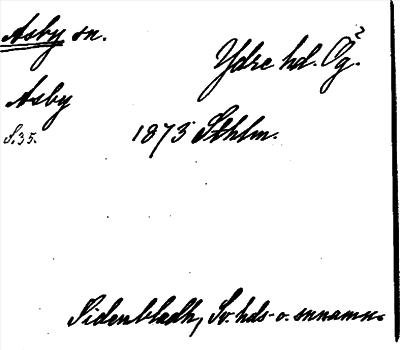 Asby sn.
Ydre hd. Ög.²
Asby
S.35.
1873 Sthlm.
Sidenbladh, Sv. hds- o. snnamn.